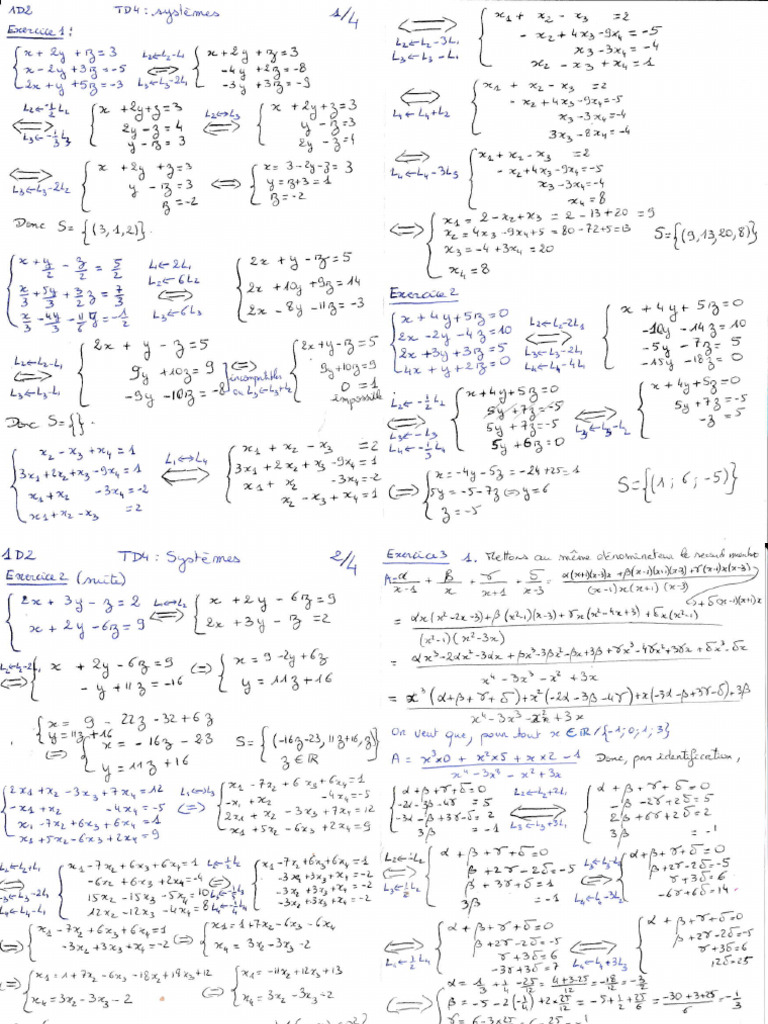 1D2 TD4 : systèmes 1/4
Exercice 1 :
x + 2y + z = 3
x - 2y + 3z = -5
2x + y + 5z = -3
L2←L2-L1
⟺
L3←L3-2L1
x + 2y + z = 3
-4y + 2z = -8
-3y + 3z = -9
L2←-1/2 L2
⟺
L3←-1/3 L3
x + 2y + z = 3
2y - z = 4
y - z = 3
L2↔L3
⟺
x + 2y + z = 3
y - z = 3
2y - z = 4
⟺
L3←L3-2L2
x + 2y + z = 3
y - z = 3
z = -2
⟺
x = 3 - 2y - z = 3
y = z + 3 = 1
z = -2
Donc S = {(3,1,2)}.
x + y/2 - z/2 = 5/2
x/3 + 5y/3 + 3/2 z = 7/3
x/3 - 4y/3 - 11/6 z = -1/2
L1←2L1
L2←6L2
⟺
L3←6L3
2x + y - z = 5
2x + 10y + 9z = 14
2x - 8y - 11z = -3
L2←L2-L1
⟺
L3←L3-L1
2x + y - z = 5
9y + 10z = 9
-9y - 10z = -8
incompatibles
ou L3←L3+L2
⟺
2x + y - z = 5
9y + 10z = 9
0 = 1
impossible
Donc S = { }.
x2 - x3 + x4 = 1
3x1 + 2x2 + x3 - 9x4 = 1
x1 + x2 - 3x4 = -2
x1 + x2 - x3 = 2
L1↔L4
⟺
x1 + x2 - x3 = 2
3x1 + 2x2 + x3 - 9x4 = 1
x1 + x2 - 3x4 = -2
x2 - x3 + x4 = 1
⟺
L2←L2-3L1
L3←L3-L1
x1 + x2 - x3 = 2
- x2 + 4x3 - 9x4 = -5
x3 - 3x4 = -4
x2 - x3 + x4 = 1
⟺
L4←L4+L2
x1 + x2 - x3 = 2
- x2 + 4x3 - 9x4 = -5
x3 - 3x4 = -4
3x3 - 8x4 = -4
⟺
L4←L4-3L3
x1 + x2 - x3 = 2
- x2 + 4x3 - 9x4 = -5
x3 - 3x4 = -4
x4 = 8
⟺
x1 = 2 - x2 + x3 = 2 - 13 + 20 = 9
x2 = 4x3 - 9x4 + 5 = 80 - 72 + 5 = 13
x3 = -4 + 3x4 = 20
x4 = 8
S = {(9,13,20,8)}
Exercice 2
x + 4y + 5z = 0
2x - 2y - 4z = 10
2x + 3y + 3z = 5
4x + y + 2z = 0
L2←L2-2L1
⟺
L3←L3-2L1
L4←L4-4L1
x + 4y + 5z = 0
-10y - 14z = 10
-5y - 7z = 5
-15y - 18z = 0
L2←-1/2 L2
⟺
L3←-L3
L4←-1/3 L4
x + 4y + 5z = 0
5y + 7z = -5
5y + 7z = -5
5y + 6z = 0
⟺
L3←L3-L2
x + 4y + 5z = 0
5y + 7z = -5
-z = 5
⟺
x = -4y - 5z = -24 + 25 = 1
5y = -5 - 7z ⟺ y = 6
z = -5
S = {(1 ; 6 ; -5)}
1D2 TD4 : Systèmes 2/4
Exercice 2 (suite)
2x + 3y - z = 2
x + 2y - 6z = 9
L1↔L2
⟺
x + 2y - 6z = 9
2x + 3y - z = 2
L2←L2-2L1
⟺
x + 2y - 6z = 9
- y + 11z = -16
⟺
x = 9 - 2y + 6z
y = 11z + 16
x = 9 - 22z - 32 + 6z
y = 11z + 16
⟺
x = -16z - 23
y = 11z + 16
S = {(-16z-23, 11z+16, z)
z ∈ ℝ}
2x1 + x2 - 3x3 + 7x4 = 12
-x1 + x2 - 4x4 = -5
x1 - 7x2 + 6x3 + 6x4 = 1
x1 + 5x2 - 6x3 + 2x4 = 9
L1↔L3
⟺
x1 - 7x2 + 6x3 + 6x4 = 1
-x1 + x2 - 4x4 = -5
2x1 + x2 - 3x3 + 7x4 = 12
x1 + 5x2 - 6x3 + 2x4 = 9
L2←L2+L1
⟺
L3←L3-2L1
L4←L4-L1
x1 - 7x2 + 6x3 + 6x4 = 1
-6x2 + 6x3 + 2x4 = -4
15x2 - 15x3 - 5x4 = 10
12x2 - 12x3 - 4x4 = 8
⟺
x1 - 7x2 + 6x3 + 6x4 = 1
-3x2 + 3x3 + x4 = -2
-3x2 + 3x3 + x4 = -2
-3x2 + 3x3 + x4 = -2
⟺
x1 - 7x2 + 6x3 + 6x4 = 1
-3x2 + 3x3 + x4 = -2
⟺
x1 = 1 + 7x2 - 6x3 - 6x4
x4 = 3x2 - 3x3 - 2
⟺
x1 = 1 + 7x2 - 6x3 - 18x2 + 18x3 + 12
x4 = 3x2 - 3x3 - 2
⟺
x1 = -11x2 + 12x3 + 13
x4 = 3x2 - 3x3 - 2
Exercice 3 1. Mettons au même dénominateur le second membre
A = α/(x-1) + β/x + γ/(x+1) + δ/(x-3) = (α(x+1)(x-3)x + β(x-1)(x+1)(x-3) + γ(x-1)x(x-3) + δ(x-1)(x+1)x) / ((x-1)x(x+1)(x-3))
= (αx(x²-2x-3) + β(x²-1)(x-3) + γx(x²-4x+3) + δx(x²-1)) / ((x²-1)(x²-3x))
= (αx³-2αx²-3αx + βx³-3βx²-βx+3β + γx³-4γx²+3γx + δx³-δx) / (x⁴-3x³-x²+3x)
= (x³(α+β+γ+δ) + x²(-2α-3β-4γ) + x(-3α-β+3γ-δ) + 3β) / (x⁴-3x³-x²+3x)
On veut que, pour tout x ∈ ℝ/{-1;0;1;3}
A = (x³×0 + x²×5 + x×2 - 1) / (x⁴-3x³-x²+3x) Donc, par identification,
α + β + γ + δ = 0
-2α - 3β - 4γ = 5
-3α - β + 3γ - δ = 2
3β = -1
L2←L2+2L1
⟺
L3←L3+3L1
α + β + γ + δ = 0
-β - 2γ + 2δ = 5
2β + 6γ + 2δ = 2
3β = -1
L2←-L2
⟺
L3←1/2 L3
α + β + γ + δ = 0
β + 2γ - 2δ = -5
β + 3γ + δ = 1
3β = -1
L3←L3-L2
⟺
L4←L4-3L2
α + β + γ + δ = 0
β + 2γ - 2δ = -5
γ + 3δ = 6
-6γ + 6δ = 14
⟺
L4←1/2 L4
α + β + γ + δ = 0
β + 2γ - 2δ = -5
γ + 3δ = 6
-3γ + 3δ = 7
⟺
L4←L4+3L3
α + β + γ + δ = 0
β + 2γ - 2δ = -5
γ + 3δ = 6
12δ = 25
⟺
α = 1/3 + 1/4 - 25/12 = (4+3-25)/12 = -18/12 = -3/2
β = -5 - 2(-1/4) + 2×25/12 = -5 + 1/2 + 25/6 = (-30+3+25)/6 = -1/3